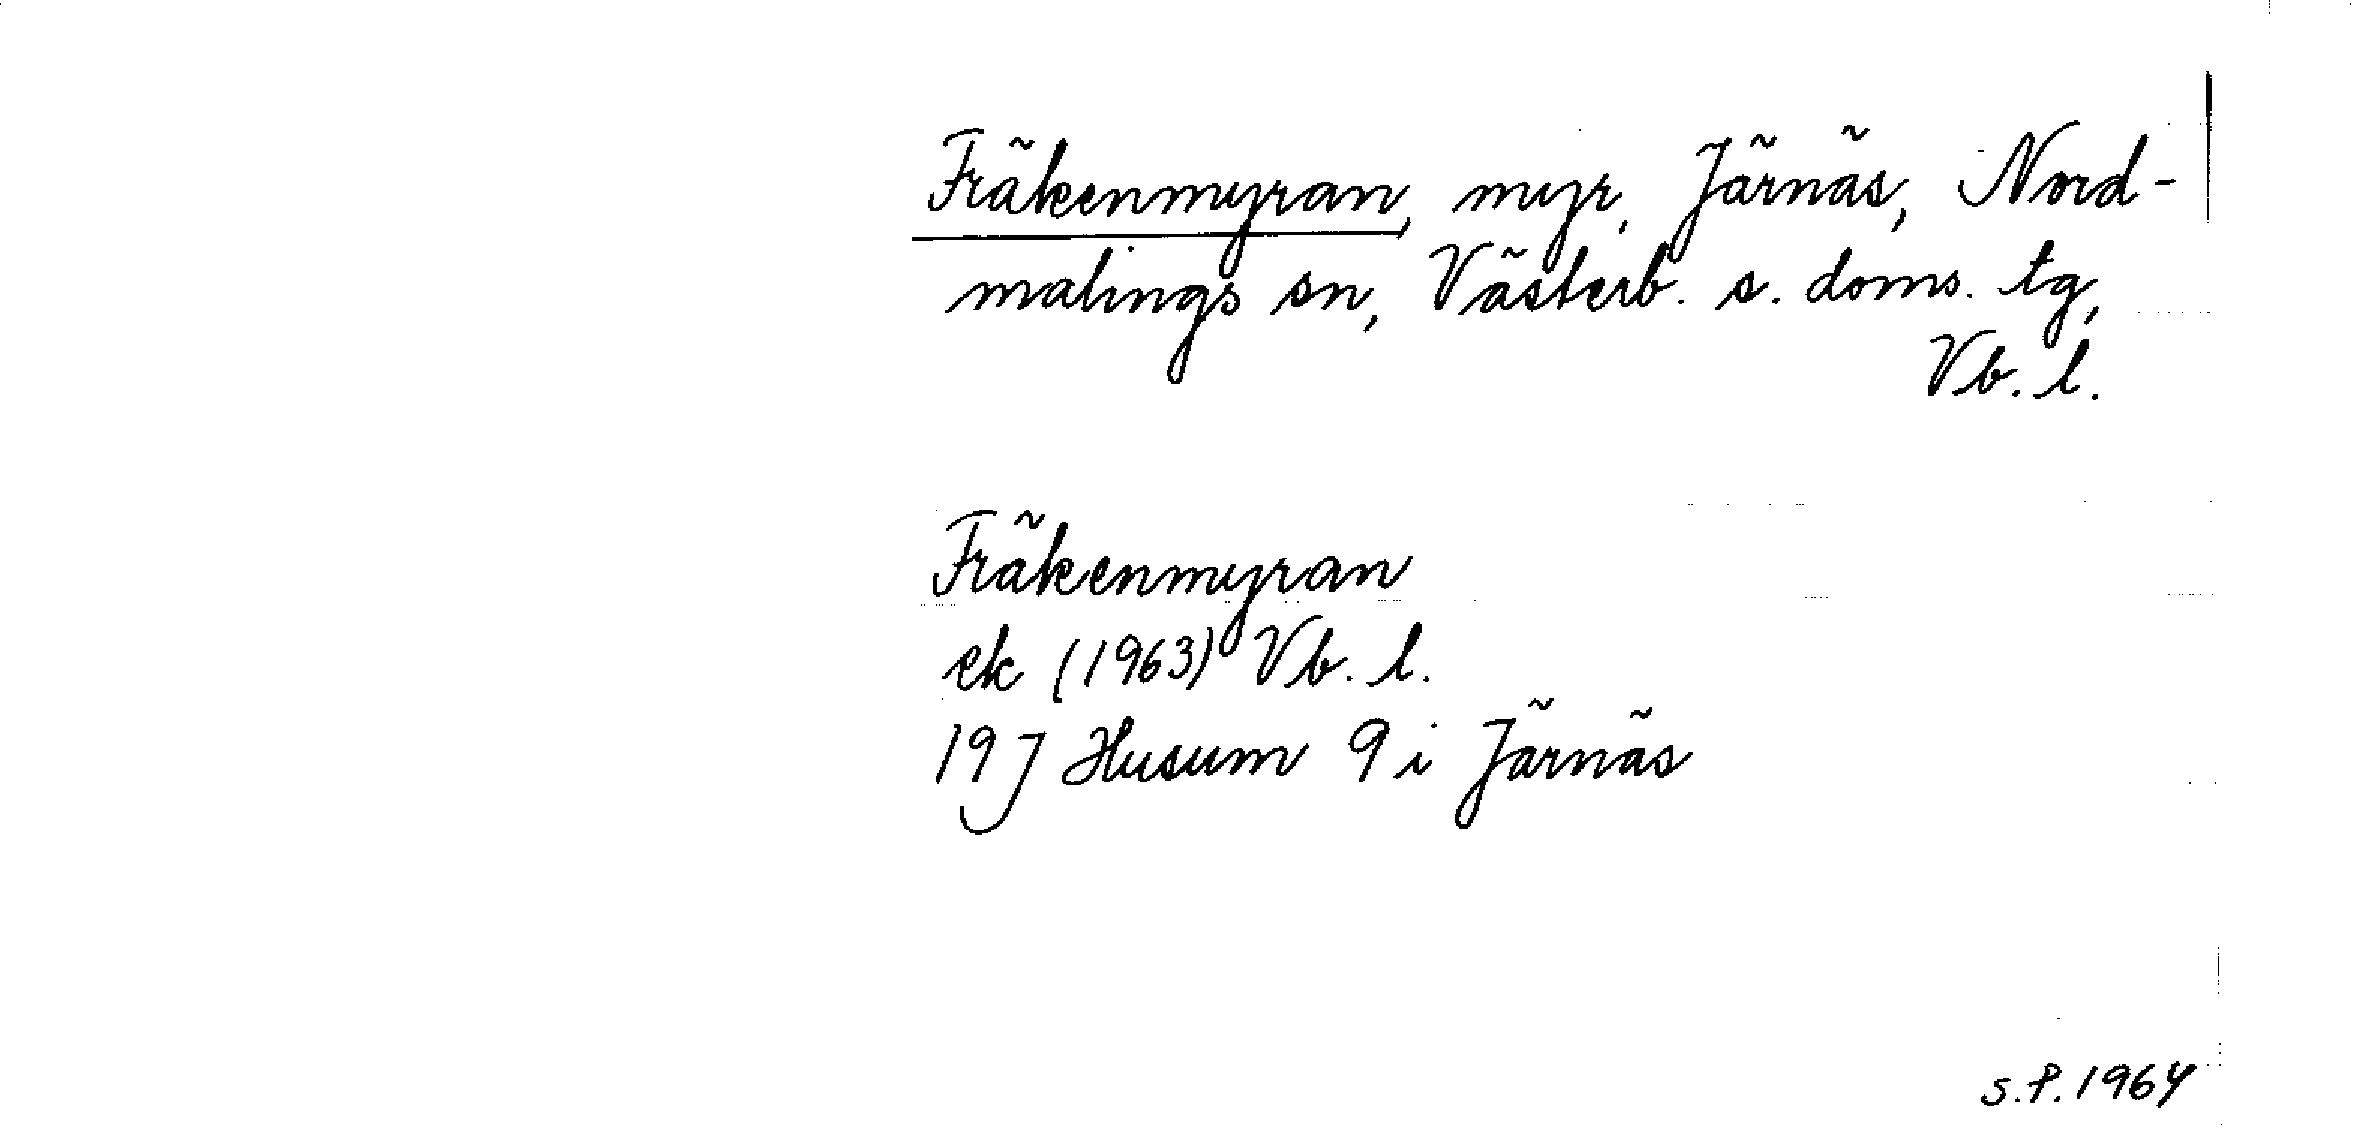 Fräkenmyran, myr, Järnäs, Nord-
malings sn, Västerb. s. doms. tg,
Vb. l.
Fräkenmyran
ek (1963) Vb. l.
19 J Husum 9 i Järnäs
S.P. 1964